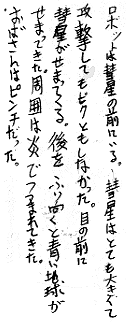 ロボットは彗星の前にいる。彗星はとても大きくて
攻撃してもビクともしなかった。目の前に
彗星がせまってくる。後をふりむくと青い地球が
せまってきた。周囲は炎でつつまれてきた。
おばさんはピンチだった。